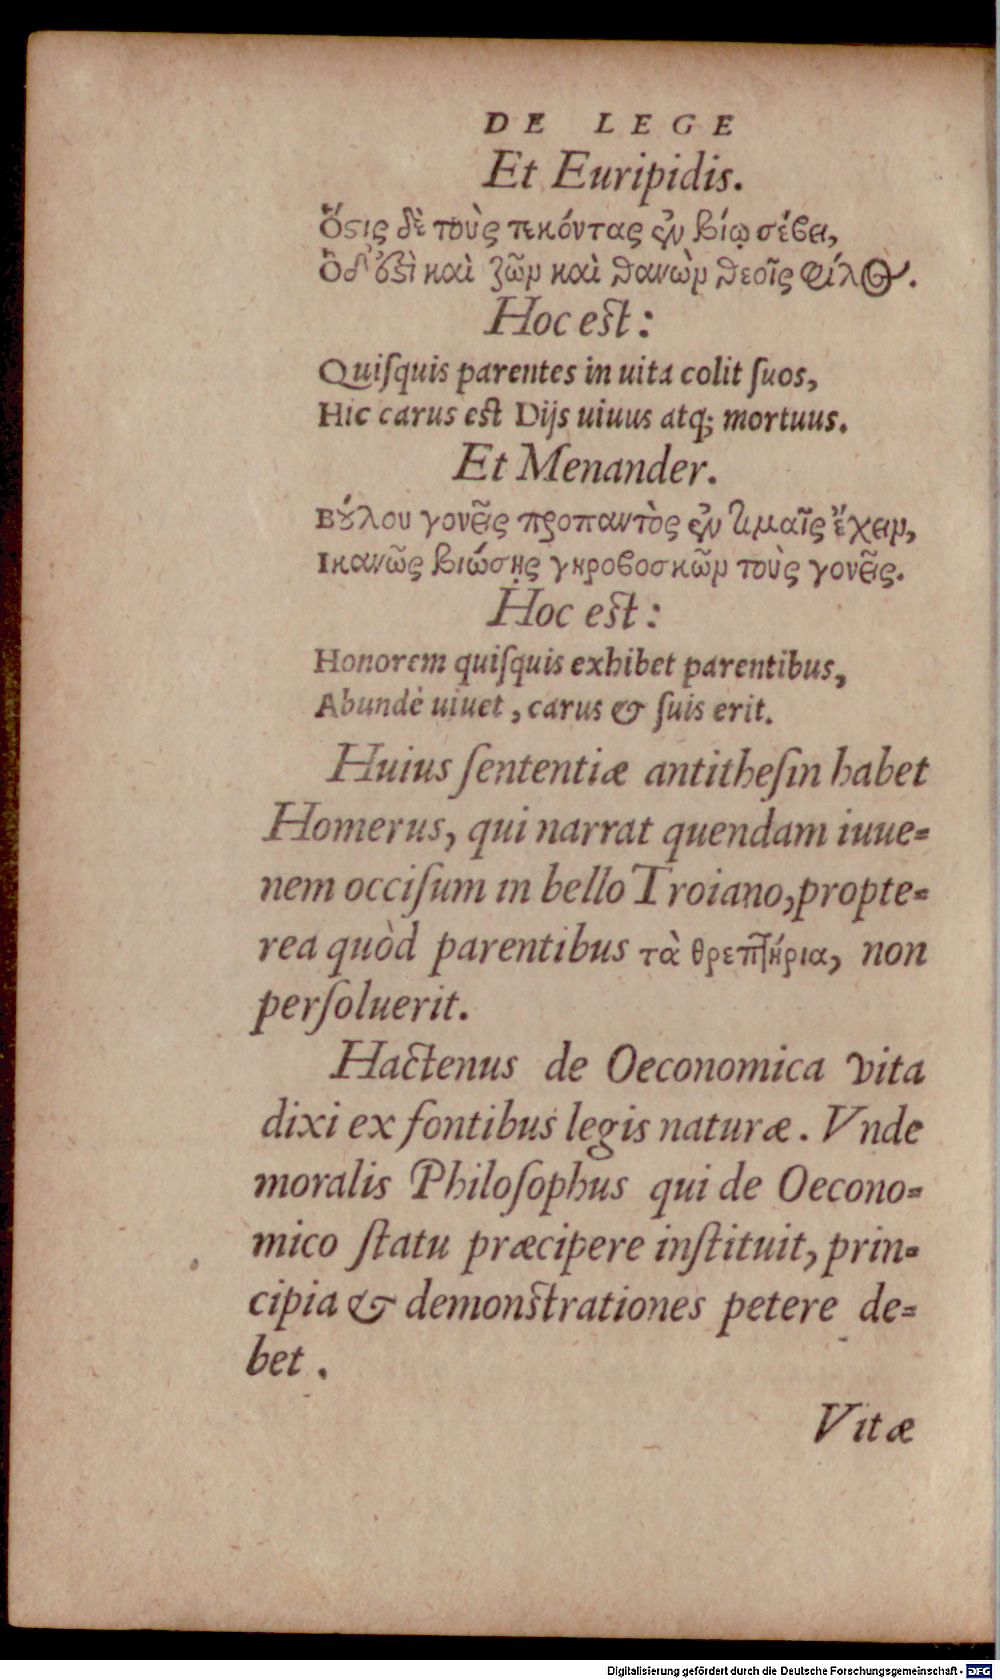 DE LEGE
Et Euripidis.
Ὅστις δὲ τοὺς τεκόντας ἐν βίῳ σέβει,
Ὅδ' ἐστὶ καὶ ζῶν καὶ θανὼν θεοῖς φίλος.
Hoc est:
Quiſquis parentes in uita colit ſuos,
Hic carus est Dijs uiuus atq; mortuus.
Et Menander.
Βούλου γονεῖς προπαντὸς ἐν τιμαῖς ἔχειν,
Ικανῶς βιώσῃς γηροβοσκῶν τοὺς γονεῖς.
Hoc est:
Honorem quiſquis exhibet parentibus,
Abundè uiuet, carus & ſuis erit.
Huius ſententiæ antitheſin habet
Homerus, qui narrat quendam iuue=
nem occiſum in bello Troiano, propte=
rea quòd parentibus τὰ θρεπτήρια, non
perſoluerit.
Hactenus de Oeconomica vita
dixi ex fontibus legis naturæ. Vnde
moralis Philoſophus qui de Oecono=
mico ſtatu præcipere inſtituit, prin=
cipia & demonstrationes petere de=
bet.
Vitæ
Digitalisierung gefördert durch die Deutsche Forschungsgemeinschaft - DFG